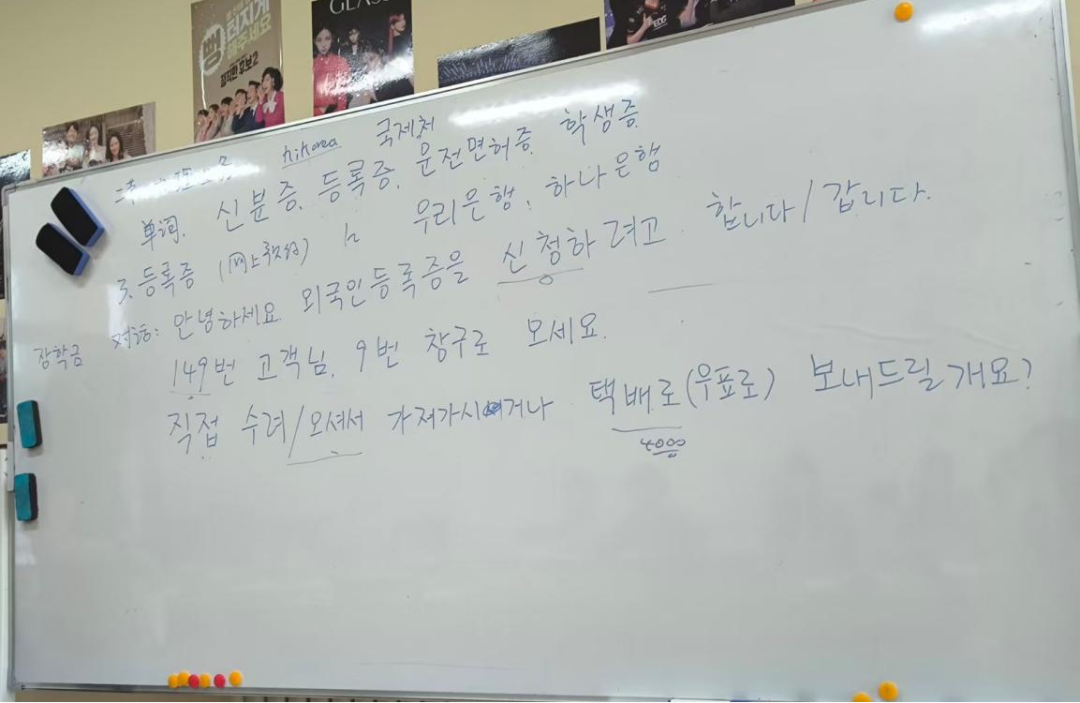 떠지게
해주세요
GLASS
EDG
hikorea 국제처
单词. 신분증, 등록증, 운전면허증, 학생증
3. 등록증 (网上预约) 우리은행, 하나은행
对话: 안녕하세요. 외국인등록증을 신청하려고 합니다/갑니다.
장학금
149번 고객님, 9번 창구로 오세요.
직접 수려/오셔서 가져가시거나 택배로(우표로) 보내드릴개요?
4000